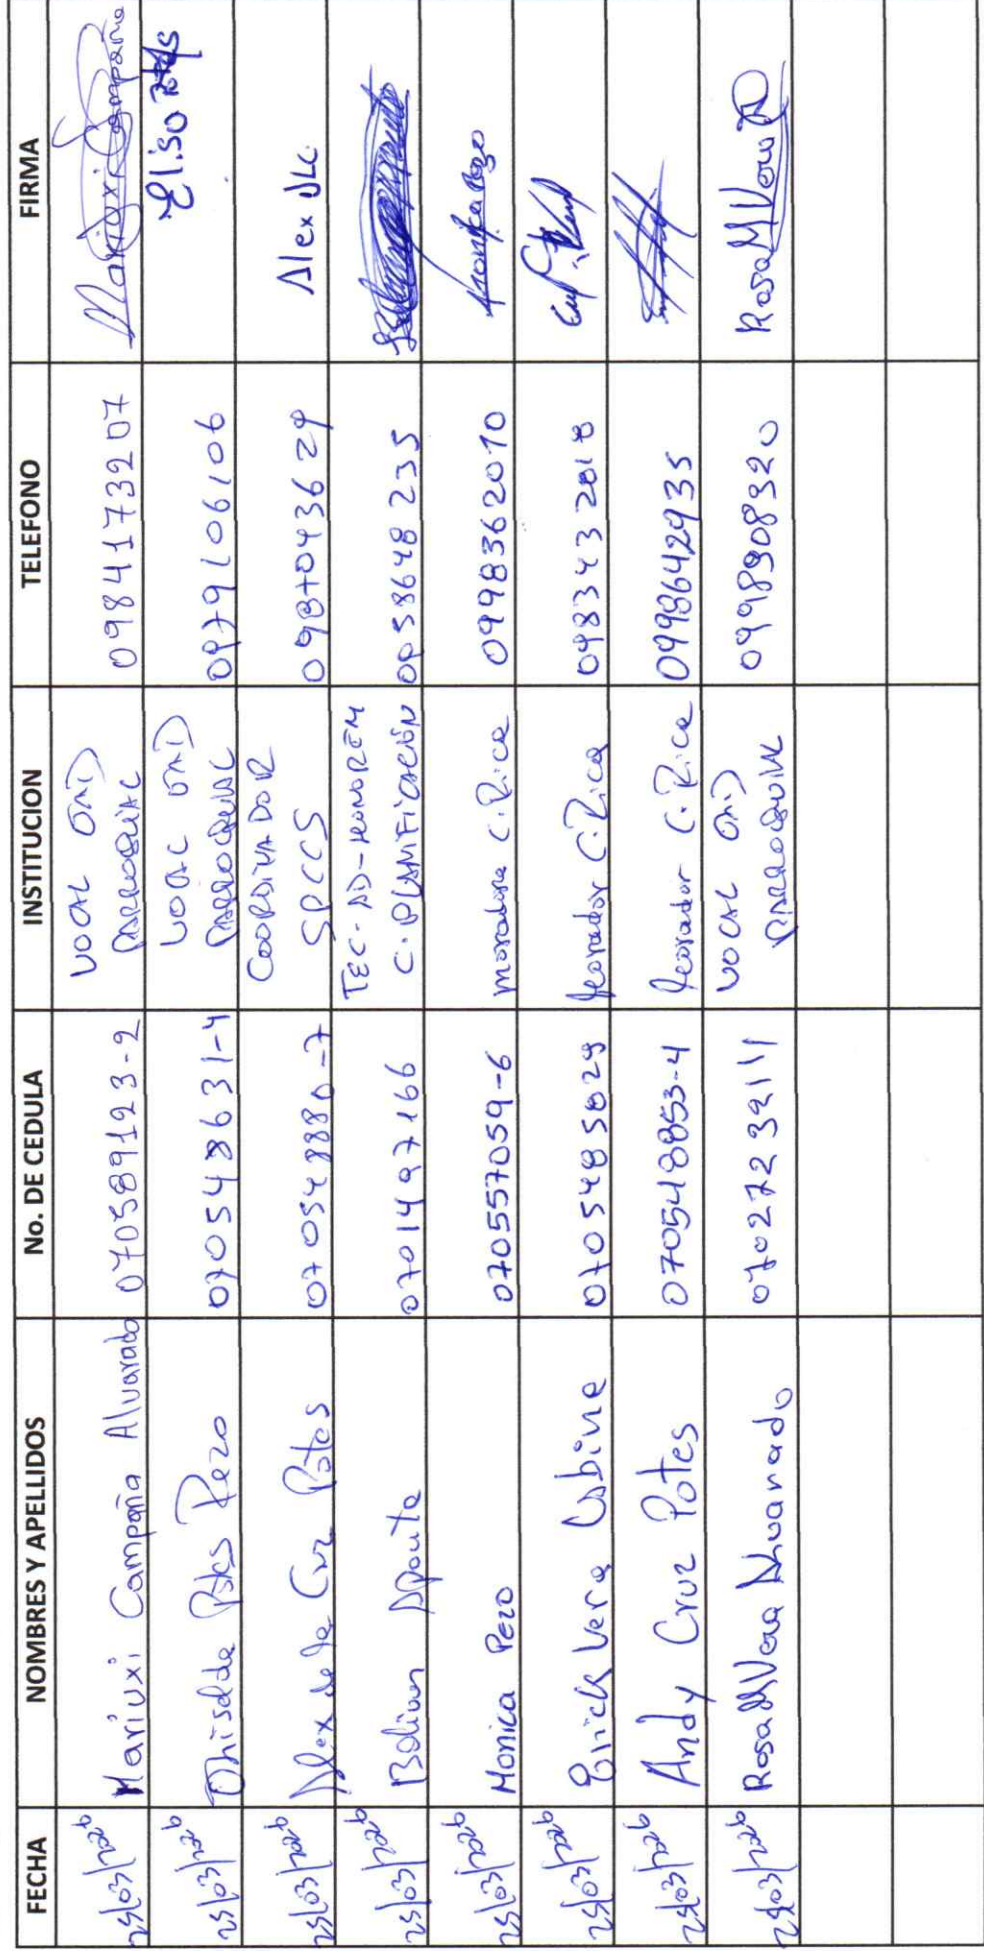 FECHA NOMBRES Y APELLIDOS No. DE CEDULA INSTITUCION TELEFONO FIRMA
Mariuxi Campaña Alvarado 070589123-2 VOCAL GAD PARROQUIAL 0984173207 Mariuxi Campaña
Potes Pezo 070548631-4 VOCAL GAD PARROQUIAL 0979106106 Eliso
Alex de la Cruz Potes 070548880-7 COORDINADOR SPCCS 0987043629 Alex
Bolivar Aponte 0701497166 TEC-AD-HONOREM C. PLANIFICACIÓN 0058648235
Monica Pezo 070557059-6 moradora C. Rica 0998362010 Monica Pezo
Erick Vera 0705485029 Morador C. Rica 0983432018
Andy Cruz Potes 070548853-4 Morador C. Rica 0998642935
Rosa M Vera Alvarado 0702723911 VOCAL GAD PARROQUIAL 0999808320 Rosa M Vera